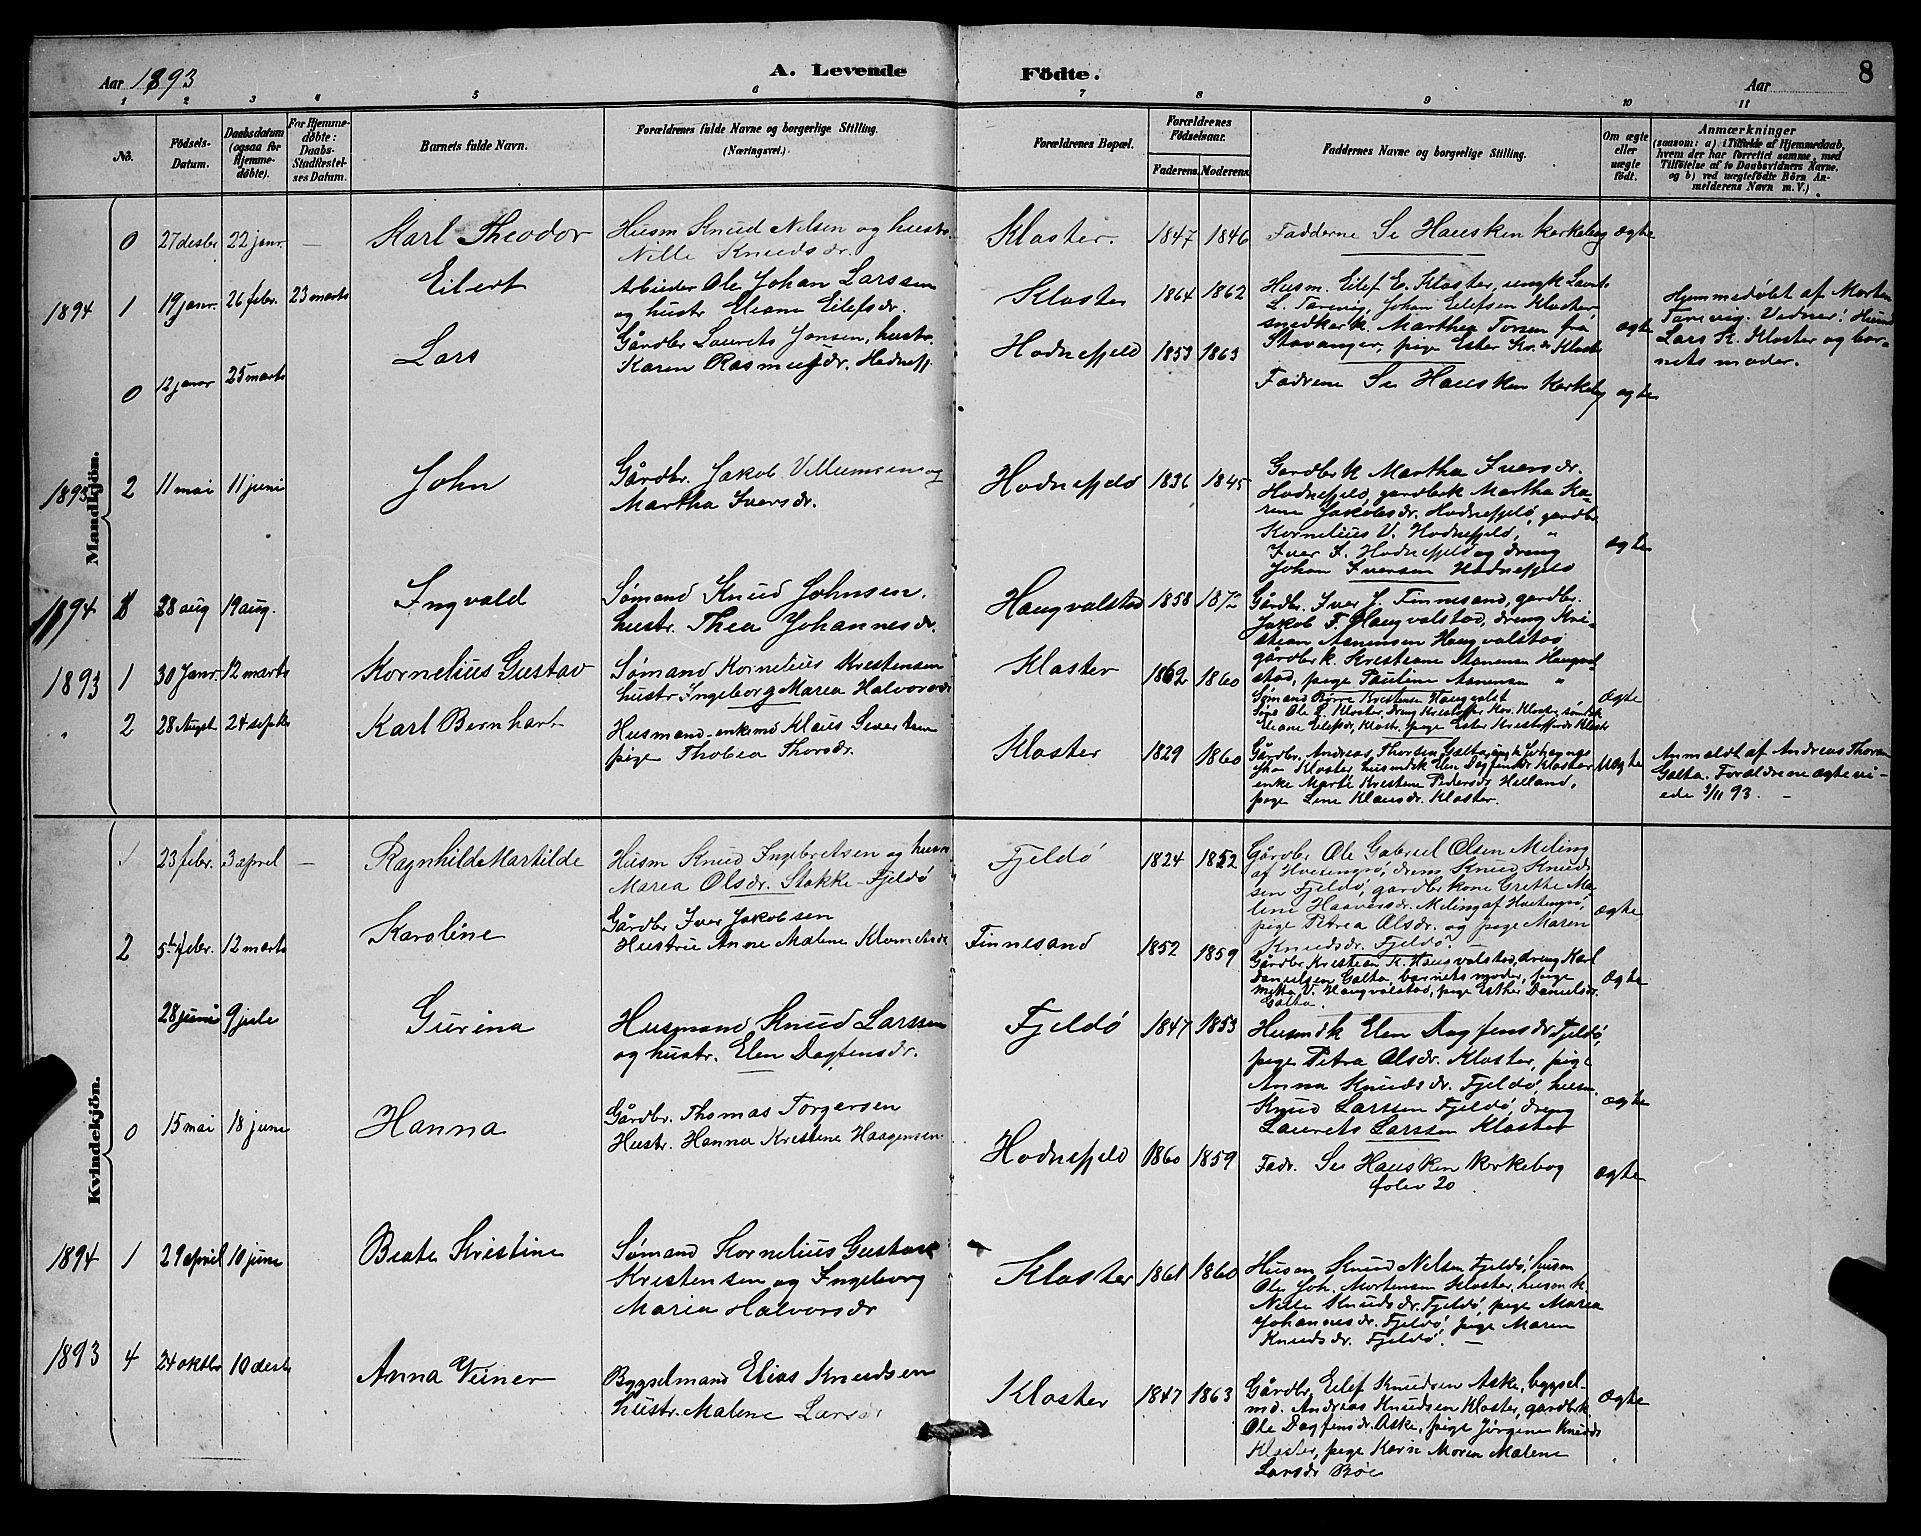 Aar 1893
A. Levende Födte.
Aar
8
1 2 3 4 5 6 7 8 9 10 11
No.
Födsels-Datum.
Daabsdatum (ogsaa for Hjemmedöbte).
For Hjemmedöbte: Daabs-Stadfæstelses Datum.
Barnets fulde Navn.
Forældrenes fulde Navne og borgerlige Stilling.
(Næringsvei.)
Forældrenes Bopæl.
Forældrenes Födselsaar.
Faderens. Moderens.
Faddernes Navne og borgerlige Stilling.
Om ægte eller uægte födt.
Anmærkninger
(saasom: a) i Tilfælde af Hjemmedaab,
hvem der har forrettet samme, med
Tilföielse af to Daabsvidners Navne.
og b) ved uægtefödte Börn An-
melderens Navn m. V.)
Mandkjön.
0 27 desbr 22 janr. — Karl Theodor
Husm Knud Nilsen og hustr.
Nille Knudsdr.
Kloster. 1847 1846
Fadderne Se Hausken kerkebog ægte
1894 1 19 janr. 26 febr. 23 marts Eilert
Arbeider Ole Johan Larssen
og hustr Eliane Eilefsdr.
Kloster 1864 1862
Husm. Eilef E. Kloster, ungk Laurts
L. Tarevig, Johan Eilefsen Kloster,
snedkerk. Marthea Torsen fra
Stavanger, pige Ester Kr.dr Kloster
ægte
Hjemmedöbt af Morten
Tarevig. Vidner: Husmd
Lars K. Kloster og bar-
nets moder.
0 12 janr 25 marts Lars
Gårdbr Laurets Jonsen, hustr.
Karen Rasmusdr. Hodnefj.
Hodnefjeld 1853 1863
Fadrene Se Hausken Kerkebog ægte
1893 2 11 mai 11 juni John
Gårdbr. Jakob Villumsen og
Martha Iversdr.
Hodnefjeld 1836 1845
Gardbrk Martha Iversdr.
Hodnefjeld, gardbrk Martha Ka-
rene Jakobsdr. Hodnefjeld, gardbr.
Kornelius V. Hodnefjeld, "
Iver I. Hodnefjeld og dreng
Johan Iversen Hodnefjeld
ægte
1894 28 aug 19 aug. Ingvald
Sømand Knud Johnsen,
hustr. Thea Johannesdr.
Haugvalstad 1858 1872
Gårdbr. Iver J. Finnesand, gardbr.
Jakob T. Haugvalstad, dreng Kri-
stian Asmunsen Haugvalstad
gårdbrk. Kristiane Haugval-
stad, pige Pauline Asmunsen "
1893 1 30 Janr. 12 marts Kornelius Gustav
Sømand Kornelius Kristensen
hustr Ingeborg Marea Halvorsdr
Kloster 1862 1860
Sømand Børre Kristensen Haugvalst
Ole L Kloster, dreng Kristoffer Kor. Kloster,
Eliane Eilefsdr, Klostr, pige Ester Kristoffersdr Kloster
ægte
" 2 28 August 24 septbr Karl Bernhart
Husmand-enkemd Klaus Severtsen
pige Thobea Thorsdr.
Kloster 1829 1860
Gårdbr. Andreas Thorsen Galta,
Kloster, husmdk Elen Dagfensdr Kloster
enke Marte Kristene Pedersdr Helland,
pige Line Klausdr. Kloster.
uægte
Anmeldt af Andreas Thorsen
Galta. Foraldrene ægtevi-
ede 3/11 93. —
Kvindekjön.
1 23 febr. 3 aprel — Ragnhilde Martilde
Husm Knud Ingebretsen og hustr
Marea Olsdr. Stokke-Fjeldö
Fjeldö 1824 1852
Gårdbr Ole Gabriel Olsen Meling
af Hvitingsö, dreng Knud Knud-
sen Fjeldö, gardbr kone Grethe Ma-
lene Haaversdr. Meling af Hvitingsö,
pige Petrea Olsdr. og pige Maren
Knudsdr. Fjeldö. —
ægte
2 5te febr. 12 marts Karoline
Gårdbr Iver Jakobsen
Hustru Anne Malene
Finnesand 1852 1859
Gårdbr Kristian K. Haugvalstad, dreng Karl
Danielsen Galta, barnets moder, pige
Metta V. Haugvalstad, pige Esther Danielsdr.
Galta.
ægte
28 juni 9 jule Gurina
Husmand Knud Larssen
og hustr. Elen Dagfensdr.
Fjeldö 1847 1853
Husmdk Elen Dagfensdr Fjeldö,
pige Petra Olsdr. Kloster, pige
Anna Knudsdr. Fjeldö, husm.
Knud Larssen Fjeldö, dreng
Laurets Larssen Kloster
ægte
0 15 mai 18 june Hanna
Gårdbr. Thomas Torgersen
Hustr. Hanna Kristene Haagensen
Hodnefjeld 1860 1859
Fadr. Se Hausken Kerkebog
folio 20
ægte
1894 1 29 aprel 10 june Beate Kristine
Sømand Kornelius Gustav
Kristensen og Ingeborg
Maria Halvorsdr
Kloster 1861 1860
Husm Knud Nelsen Fjeldö, husm
Ole Joh. Mortensen Kloster, husm k.
Nelle Knudsdr. Fjeldö, pige Marea
Johannesdr. Fjeldö, pige Maren
Knudsdr. Fjeldö. —
1893 4 24 oktbr 10 desbr Anna Veiner
Bygselmand Elias Knudsen
hustr. Malene Larsdr
Kloster 1847 1863
Gårdbr. Eilef Knudsen Aske, bygsel-
md. Andreas Knudsen Kloster, gardbrk
Ole Dagfensdr. Aske, pige Jörgine Knudsd
Kloster, pige Karen Maren Malene
Larsdr Bøe
ægte